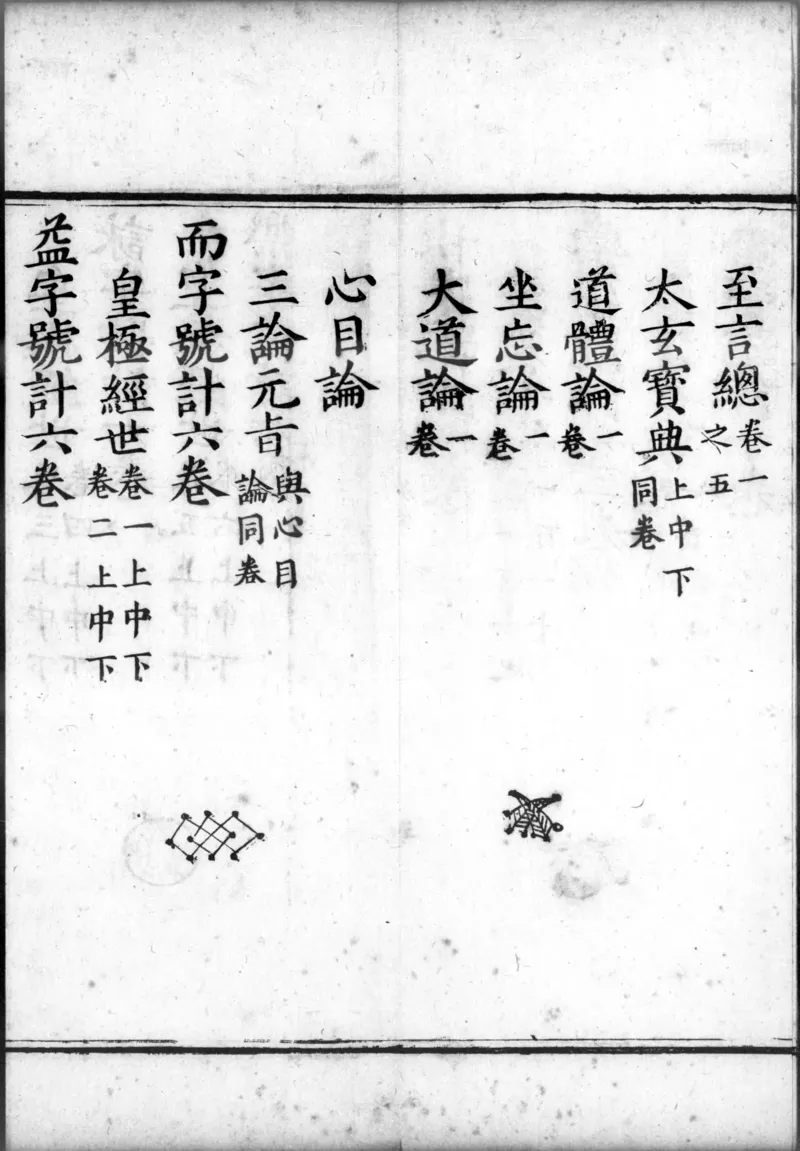 至言總卷一之五
太玄寶典上中下同卷
道體論一卷
坐忘論一卷
大道論一卷
心目論
三論元旨與心目論同卷
而字號計六卷
皇極經世卷一上中下卷二上中下
益字號計六卷